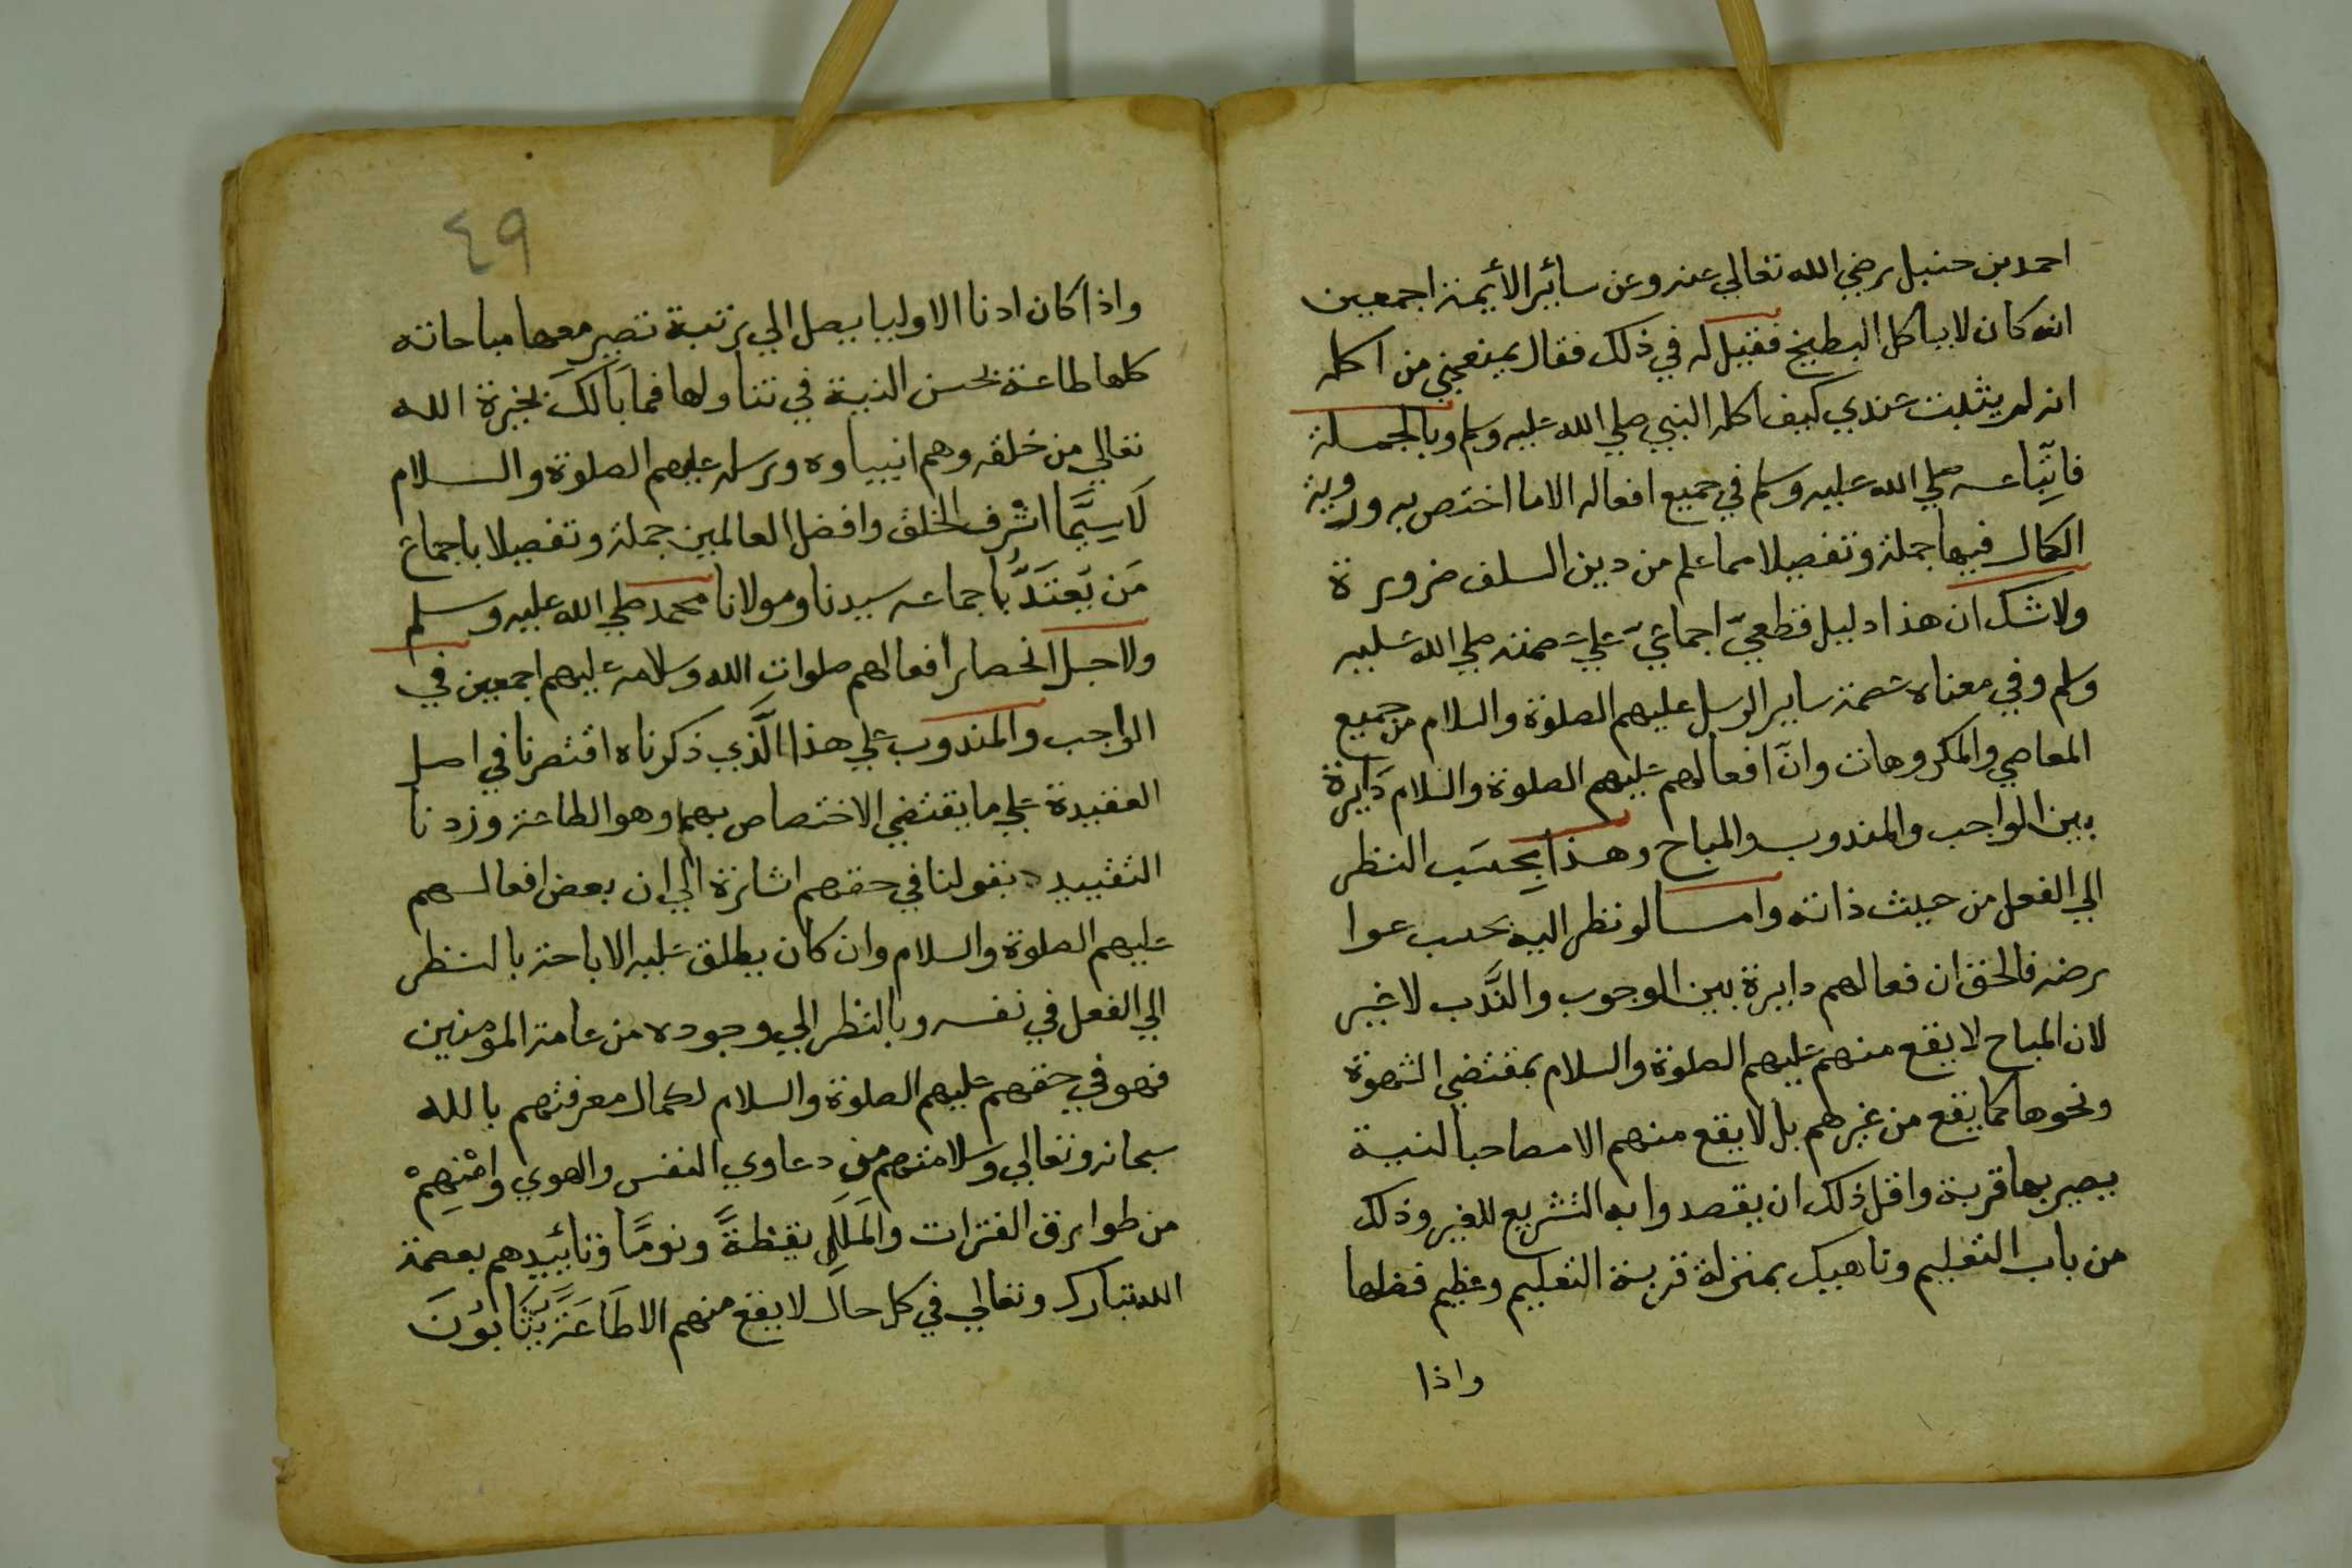 احمد بن حنبل رضي الله تعالي عنه وعن سائر الأئمة اجمعين
انه كان لا ياكل البطيخ فقيل له في ذلك فقال يمنعني من اكله
انه لم يثبت عندي كيف اكله النبي صلي الله عليه وسلم وبالجملة
فاتّباعه صلي الله عليه وسلم في جميع افعاله الا ما اختص به وروية
الكمال فيها جملة وتفصيلا مما علم من دين السلف ضرورة
ولا شك ان هذا دليل قطعيّ اجماعيّ علي عصمته صلي الله عليه
وسلم وفي معناه عصمة ساير الرسل عليهم الصلوة والسلام من جميع
المعاصي والمكروهات وانّ افعالهم عليهم الصلوة والسلام دَايرة
بين الواجب والمندوب والمباح وهذا بِحسَب النظر
الي الفعل من حيث ذاته واما لو نظر اليه بحسب عوا
رضه فالحق ان فعالهم دايرة بين الوجوب والنَّدب لا غير
لان المباح لا يقع منهم عليهم الصلوة والسلام بمقتضي الشهوة
ونحوها كما يقع من غيرهم بل لا يقع منهم الا مصاحبا لنية
يصير بها قربة واقل ذلك ان يقصدوا به التشريع للغير وذلك
من باب التعليم وناهيك بمنزلة قربة التعليم وعظيم فضلها
واذا
٤٩
واذا كان ادنا الاوليا يصل الي رتبة تصير معها مباحاته
كلها طاعة بحسن النية في تناولها فما بَالكَ بخيرة الله
تعالي من خلقه وهم انبياوه ورسله عليهم الصلوة والسلام
لَا سِيَّما اشْرف الخلق وافضل العالمين جملة وتفصيلا باجماع
مَن يَعتَدُّ باجماعه سيدنا ومولانا محمد صلي الله عليه وسلم
ولاجل انحصار افعالهم صلوات الله وسلامه عليهم اجمعين في
الواجب والمندوب علي هذا الَّذي ذكرناه اقتصرنا في اصل
العقيدة علي ما يقتضي الاختصاص بهما وهو الطاعة وزدنا
التقييد بقولنا في حقهم اشارة الي ان بعض افعالهم
عليهم الصلوة والسلام وان كان يطلق عليه الاباحة بالنظر
الي الفعل في نفسه وبالنظر الي وجوده من عامة المؤمنين
فهو في حقهم عليهم الصلوة والسلام لكمال معرفتهم بالله
سبحانه وتعالي وسلامتهم من دعاوي النفس والهوي وامْنهِمْ
من طوارق الفترات والمَلَلِ يقظةً ونومًا وتأييدهم بعصمة
الله تبارك وتعالي في كل حال لا يقع منهم الا طَاعَةً يُثَابُونَ